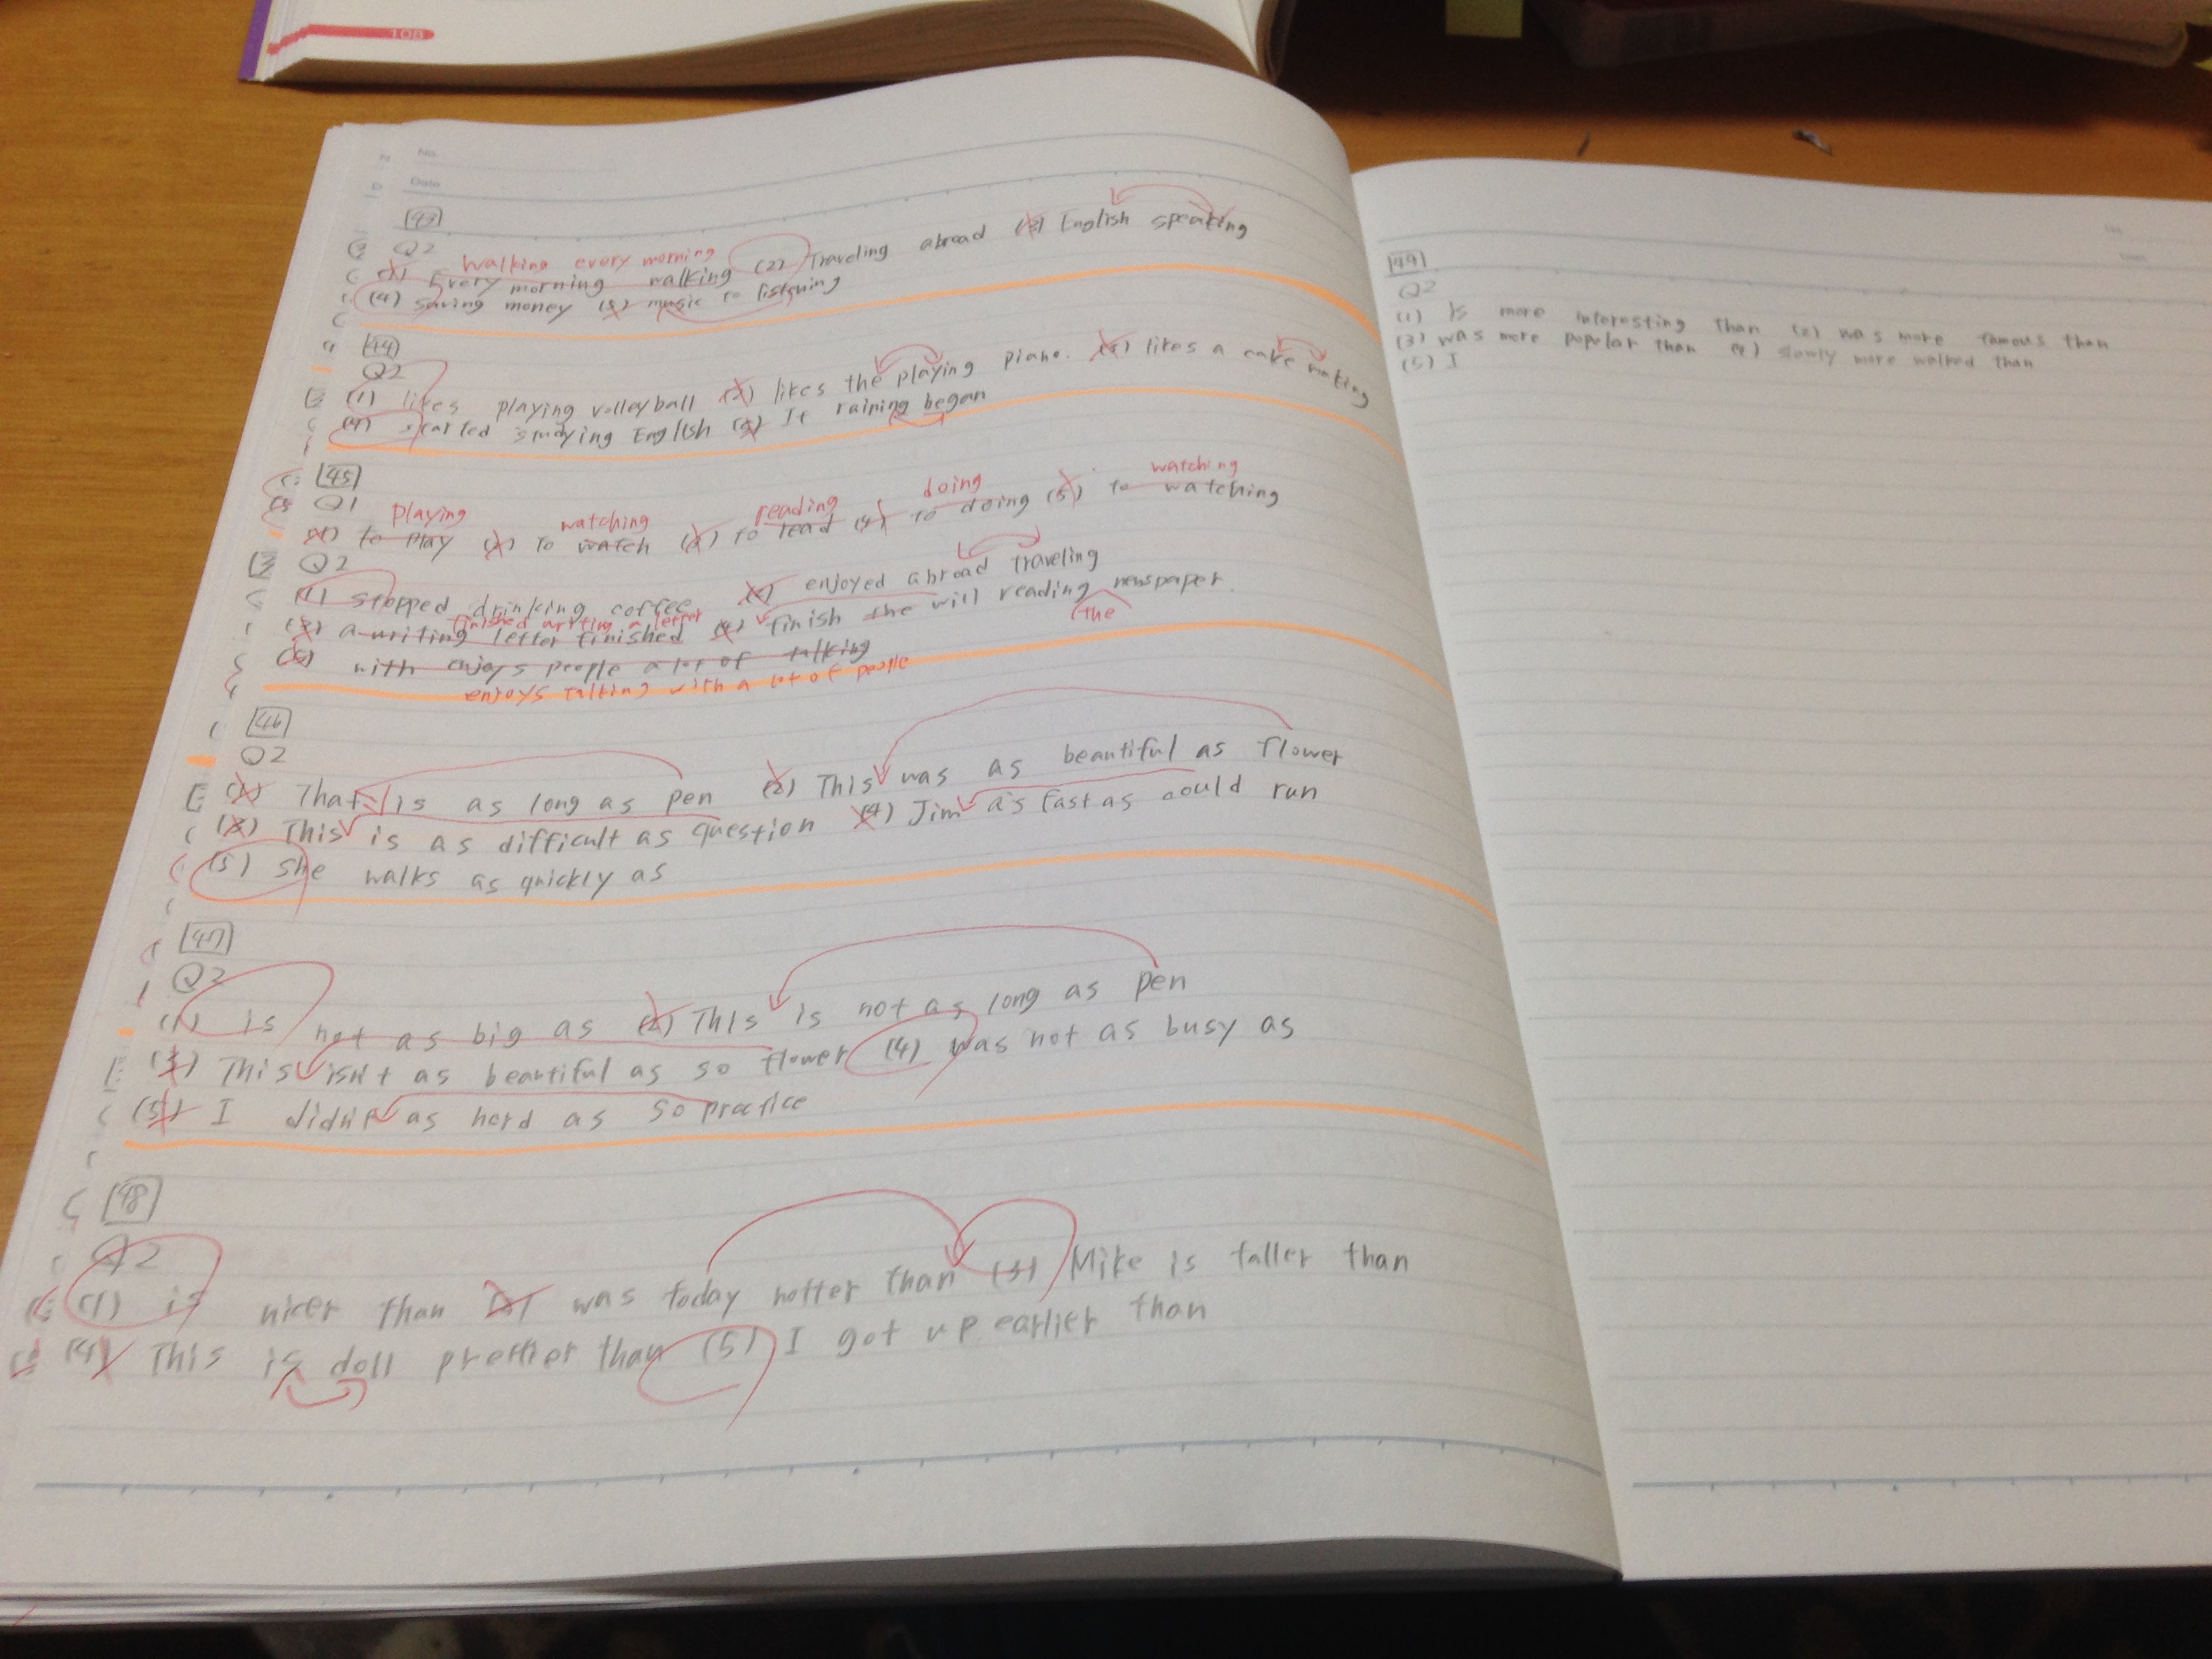 108
No.
Date
[43]
Q2
Walking every morning
(1) Every morning walking (2) Traveling abroad (3) English speaking
(4) saving money (5) music to listening
[44]
Q2
(1) likes playing volleyball (2) likes the playing piano. (3) likes a cake making
(4) started studying English (5) It raining began
[45]
Q1
playing watching reading doing watching
(1) to play (2) to watch (3) to read (4) to doing (5) to watching
Q2
(1) stopped drinking coffee (2) enjoyed abroad traveling
finished writing a letter
(3) a writing letter finished (4) finish the will reading newspaper.
(the
(5) with enjoys people a lot of talking
enjoys talking with a lot of people
[46]
Q2
(1) That is as long as pen (2) This was as beautiful as flower
(3) This is as difficult as question (4) Jim as fast as could run
(5) she walks as quickly as
[47]
Q2
(1) is not as big as (2) This is not as long as pen
(3) This isn't as beautiful as so flower (4) was not as busy as
(5) I didn't as hard as so practice
[48]
Q2
(1) is nicer than (2) was today hotter than (3) Mike is taller than
(4) This is doll prettier than (5) I got up earlier than
[49]
Q2
(1) Is more interesting than (2) was more famous than
(3) was more popular than (4) slowly more walked than
(5) I